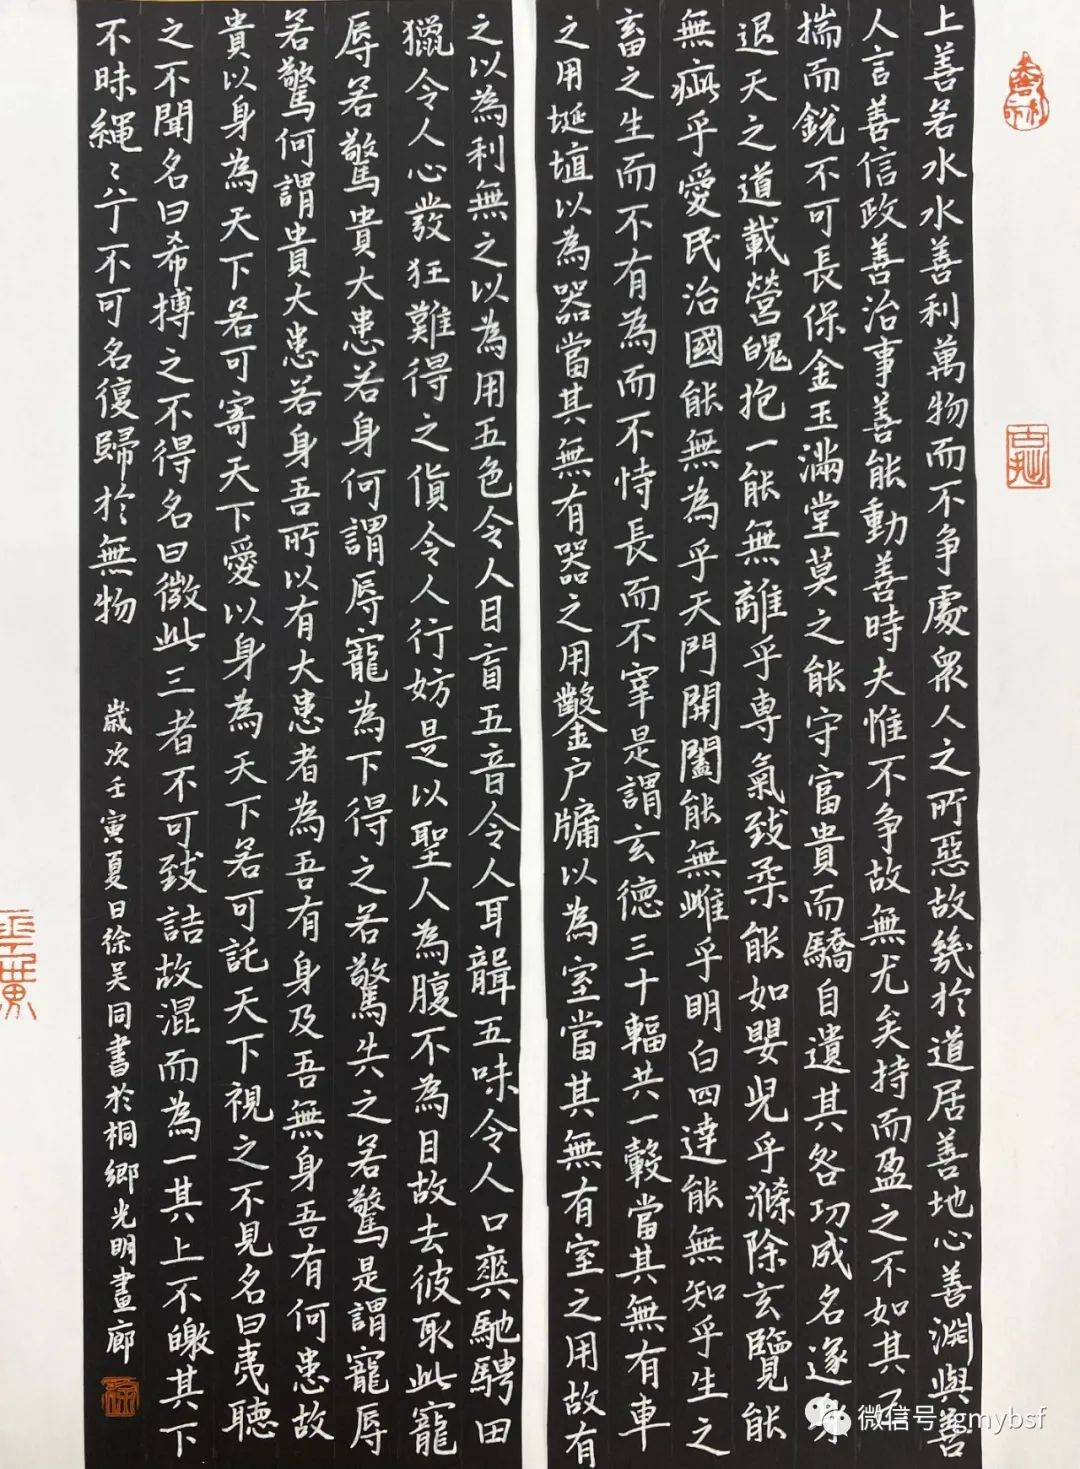 上善若水水善利萬物而不争處衆人之所惡故幾於道居善地心善淵與善
人言善信政善治事善能動善時夫惟不争故無尤矣持而盈之不如其已
揣而銳不可長保金玉滿堂莫之能守富貴而驕自遺其咎功成名遂身
退天之道載營魄抱一能無離乎專氣致柔能如嬰児乎滌除玄覽能
無疵乎愛民治國能無為乎天門開闔能無雌乎明白四達能無知乎生之
畜之生而不有為而不恃長而不宰是謂玄德三十輻共一轂當其無有車
之用埏埴以為器當其無有器之用鑿户牖以為室當其無有室之用故有
之以為利無之以為用五色令人目盲五音令人耳聾五味令人口爽馳騁田
獵令人心發狂難得之貨令人行妨是以聖人為腹不為目故去彼取此寵
辱若驚貴大患若身何謂辱寵為下得之若驚失之若驚是謂寵辱
若驚何謂貴大患若身吾所以有大患者為吾有身及吾無身吾有何患故
貴以身為天下若可寄天下愛以身為天下若可託天下視之不見名曰夷聽
之不聞名曰希搏之不得名曰微此三者不可致詰故混而為一其上不皦其下
不昧繩〻兮不可名復歸於無物
歲次壬寅夏日徐吴同書於桐鄉光明畫廊
微信号: gmybsf